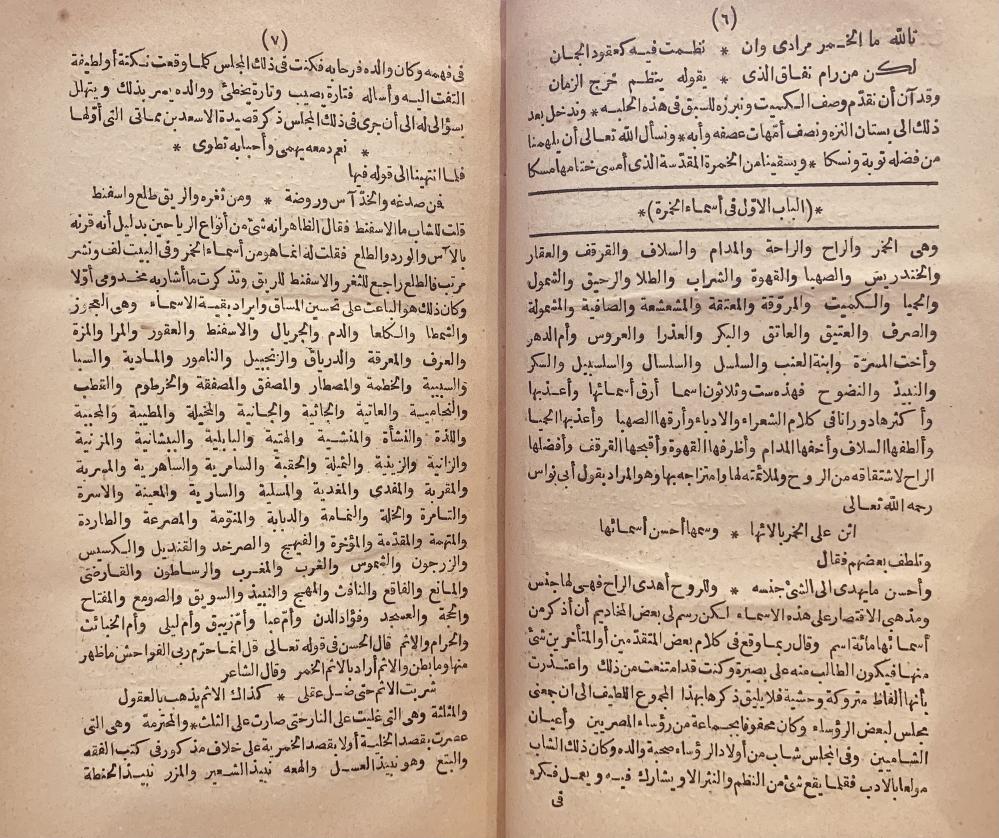 (٦)
تالله ما الخمر مرادى وان * نظمت فيه كعقود الجمان
لكن من رام نفاق الذى * يقوله ينظم خرج الزمان
وقد آن أن نقدّم وصف الكميت ونبرزه للسبق فى هذه الحلبه * وندخل بعد
ذلك الى بستان النزه ونصف أمّهات عصفه وأبه * ونسأل الله تعالى أن يلهمنا
من فضله توبة ونسكا * ويسقينا من الخمرة المقدّسة الذى أمسى ختامها مسكا
*(الباب الاوّل فى أسماء الخمرة)*
وهى الخمر والراح والراحة والمدام والسلاف والقرقف والعقار
والخندريس والصهبا والقهوة والشراب والطلا والرحيق والشمول
والحميا والكميت والمروّقة والمعتقة والمشعشعة والصافية والمشمولة
والصرف والعتيق والعاتق والبكر والعذرا والعروس وأم الدهر
وأخت المسرّة وابنة العنب والسلسل والسلسال والسلسبيل والسكر
والنبيذ والنضوح فهذه ست وثلاثون اسما أرق أسمائها وأعذبها
وأكثرها دورانا فى كلام الشعراء والادباء وأرقها الصهبا وأعذبها الحميا
وألطفها السلاف وأخفها المدام وأظرفها القهوة وأقبحها القرقف وأفضلها
الراح لاشتقاقه من الروح وللائمته لها وامتزاجه بها وهو المراد بقول أبى نواس
رحمه الله تعالى
اثن على الخمر بالائها * وسمها أحسن أسمائها
وتلطف بعضهم فقال
وأحسن مايهدى الى الشئ جنسه * وللروح أهدى الراح فهى لها جنس
ومذهبى الاقتصار على هذه الاسماء لكن رسم لى بعض المخاديم أن أذكر من
أسمائها مائة اسم وقال ربما وقع فى كلام بعض المتقدّمين أو المتأخرين شئ
منها فيكون الطالب منه على بصيرة وكنت قد امتنعت من ذلك واعتذرت
بأنها ألفاظ متروكة وحشية فلا يليق ذكرها بهذا المجموع اللطيف الى ان جمعنى
مجلس لبعض الرؤساء وكان محفوفا بجماعة من رؤساء المصريين وأعيان
الشاميين وفى المجلس شاب من أولاد الرؤساء صحبة والده وكان ذلك الشاب
مولعا بالادب فقلما يقع شئ من النظم والنثر الاو يشارك فيه ويعمل فكره
فى
(٧)
فى فهمه وكان والده فرحا به فكنت فى ذلك المجلس كلما وقعت نكتة أو لطيفة
التفت اليه وأساله فتارة يصيب وتارة يخطئ ووالده يسر بذلك ويتهلل
بسؤالى له الى أن جرى فى ذلك المجلس ذكر قصيدة الاسعد بن مماتى التى أوّلها
* نعم دمعه يهمى وأحبابه تطوى *
فلما انتهينا الى قوله فيها
فمن صدغه والخدّ آس وروضة * ومن ثغره والريق طلع واسفنط
قلت للشاب ما الاسفنط فقال الظاهر انه شئ من أنواع الرياحين بدليل أنه قرنه
بالآس والورد والطلع فقلت له انما هو من أسماء الخمر وفى البيت لف ونشر
مرتب فالطلع راجع للثغر والاسفنط للريق وتذكرت ما أشار به مخدومى أوّلا
وكان ذلك هو الباعث على تحسين المساق وايراد بقية الاسماء وهى العجوز
والشمطا والكلفا والدم والجريال والاسفنط والعقور والمرا والمزة
والعرف والمعرقة والدرياق والزنجبيل والنامور والمادية والسبا
والسبيبة والخطمة والمصطار والمصفق والمصفقة والخرطوم والقطب
والنجاميسة والعانية والجاثية والجانية والمخيلة والمطيبة والمحببة
واللذة والنشأة والمنشية والهتية والبابلية والبيشانية والمزنية
والزانية والزيتية والثميلة والحقبة والسامرية والساهرية والمهرية
والمقربة والمفدى والمغدية والمسلية والسارية والمعينة والاسرة
والتامرة والخلة والنمامة والدبابة والمنومة والمصرعة والطاردة
والمتهمة والمقدّمة والمؤخرة والفيهج والصرخد والقنديل والكسيس
والزرجون والشموس والغرب والمغرب والرساطون والقارضى
والمانع والفاقع والنافث والمهيج والنبيذ والسويق والصومع والمفتاح
والحجة والعسجد وفؤاد الدن وأم عبا وأم زنبق وأم ليلى وأم الخبائث
والحرام والاثم قال الحسن فى قوله تعالى قل انما حرّم ربى الفواحش ماظهر
منها وما بطن والاثم أراد بالاثم الخمر وقال الشاعر
شربت الاثم حتى ضل عقلى * كذاك الاثم يذهب بالعقول
والمثلثة وهى التى غليت على النار حتى صارت على الثلث * والمحترمة وهى التى
عصرت بقصد الخلية أولا بقصد الخمرية على خلاف مذكور فى كتب الفقه
والبتع وهو نبيذ العسل والهعه نبيذ الشعير والمزر نبيذ الحنطة